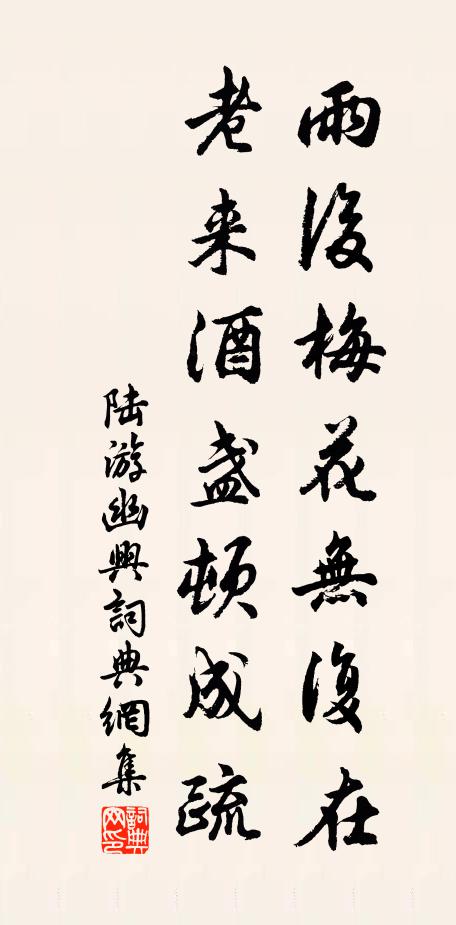 雨後梅花無復在
老来酒盏頓成疏
陆游幽興詞典網集
詞典
网印